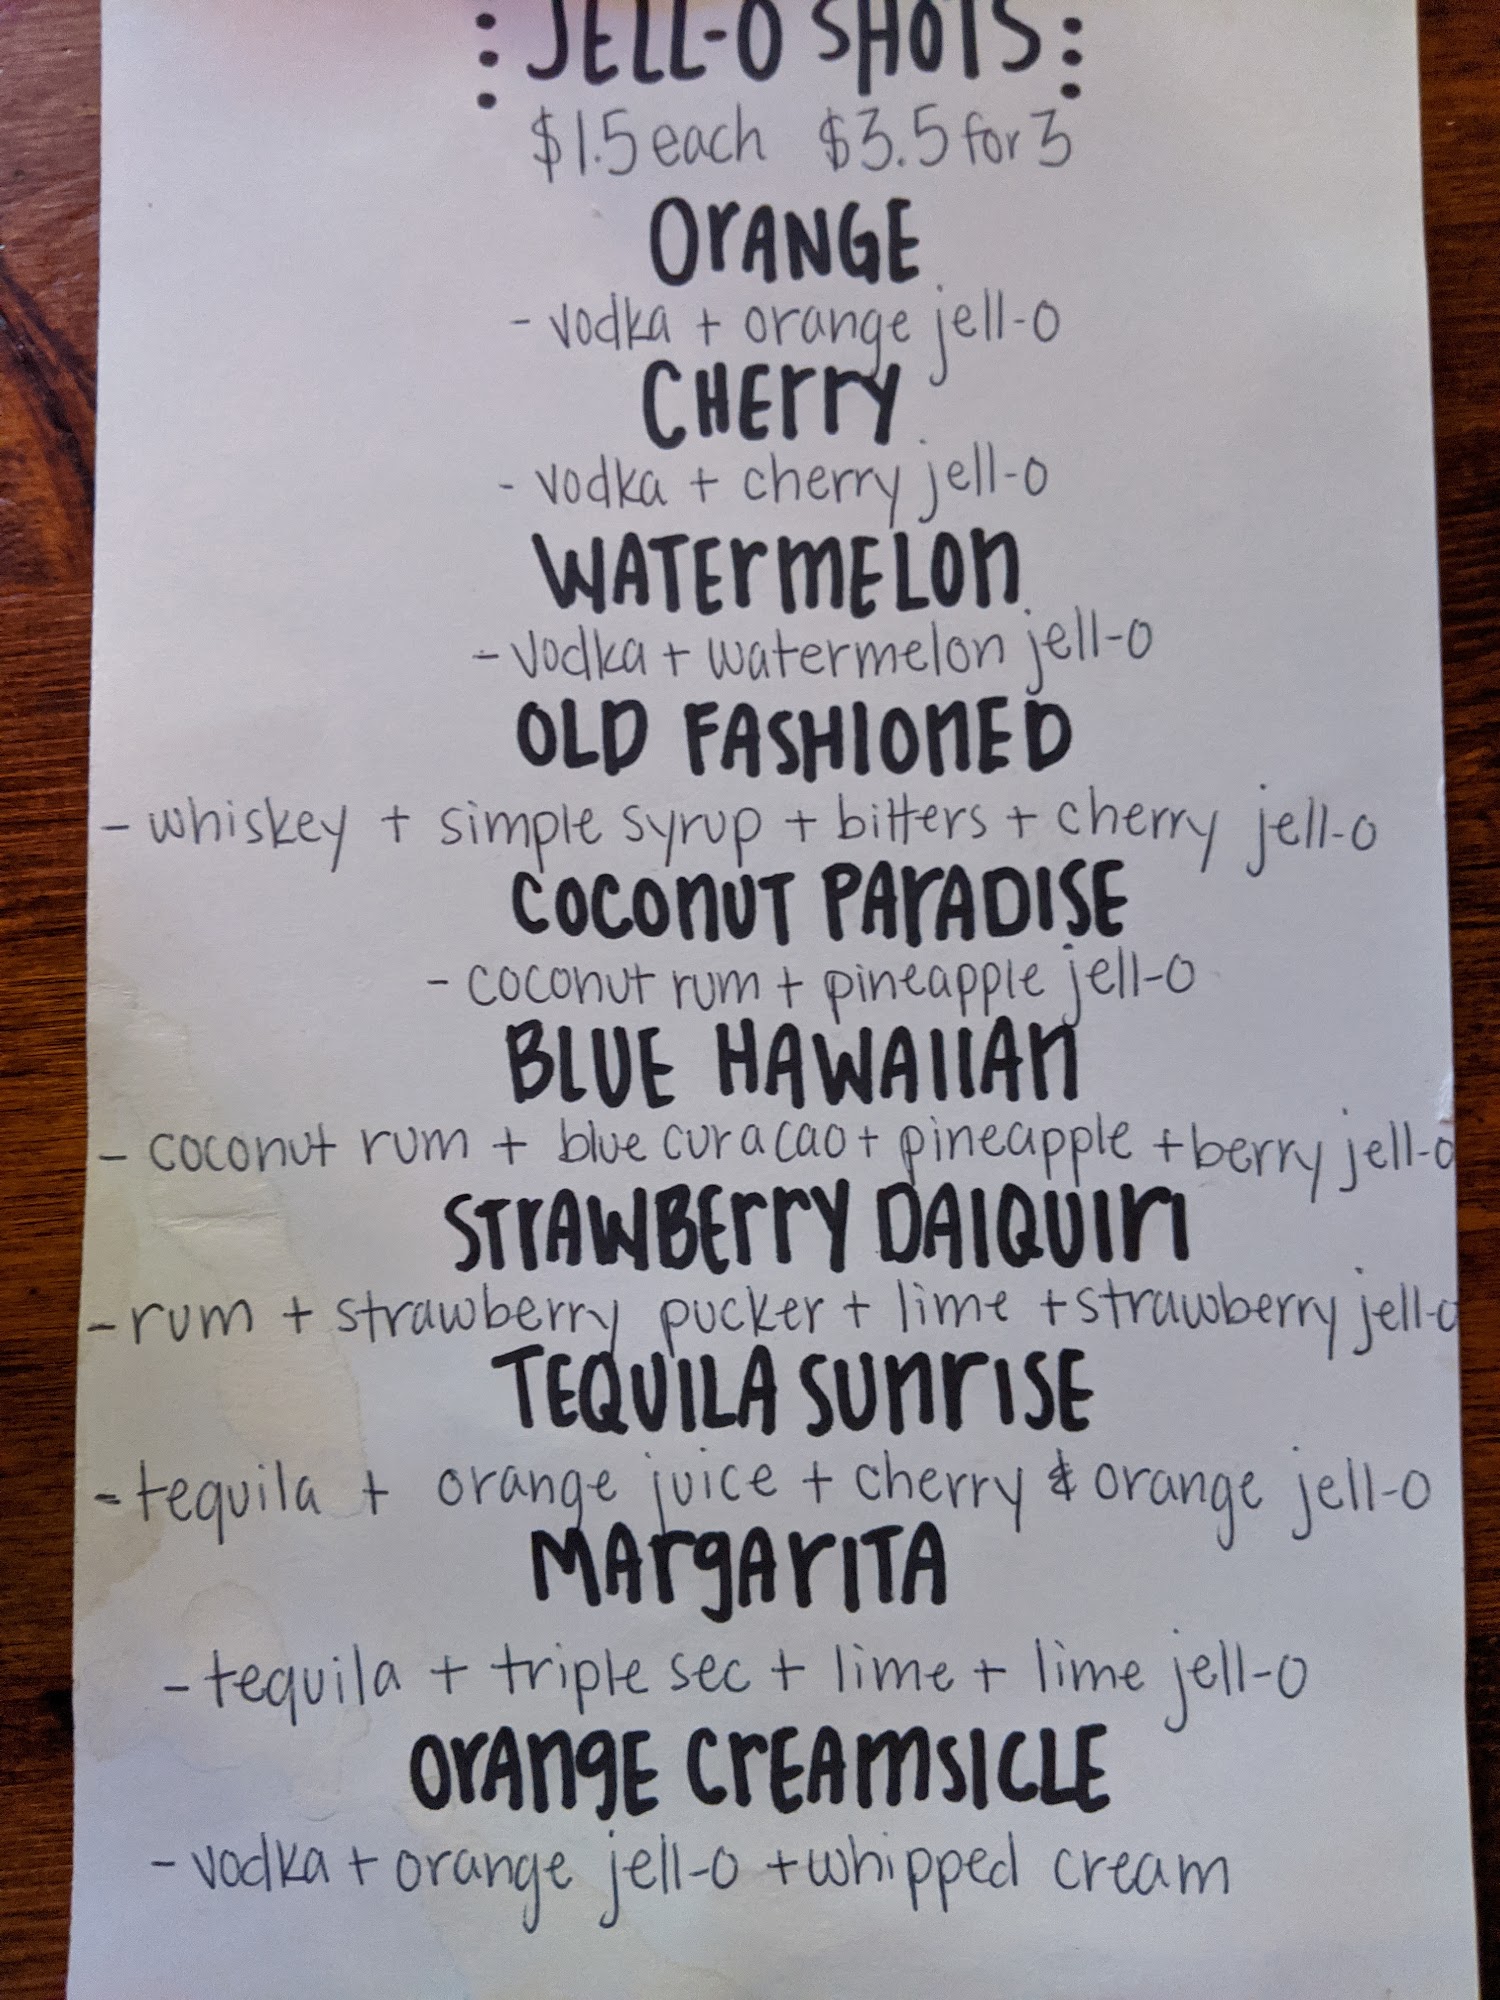 JELL-O SHOTS
$1.5 each $3.5 for 3
ORANGE
- vodka + orange jell-o
CHERRY
- vodka + cherry jell-o
WATERMELON
- vodka + watermelon jell-o
OLD FASHIONED
- whiskey + simple syrup + bitters + cherry jell-o
COCONUT PARADISE
- coconut rum + pineapple jell-o
BLUE HAWAIIAN
- coconut rum + blue curacao + pineapple + berry jell-o
STRAWBERRY DAIQUIRI
- rum + strawberry pucker + lime + strawberry jell-o
TEQUILA SUNRISE
- tequila + orange juice + cherry & orange jell-o
MARGARITA
- tequila + triple sec + lime + lime jell-o
ORANGE CREAMSICLE
- vodka + orange jell-o + whipped cream